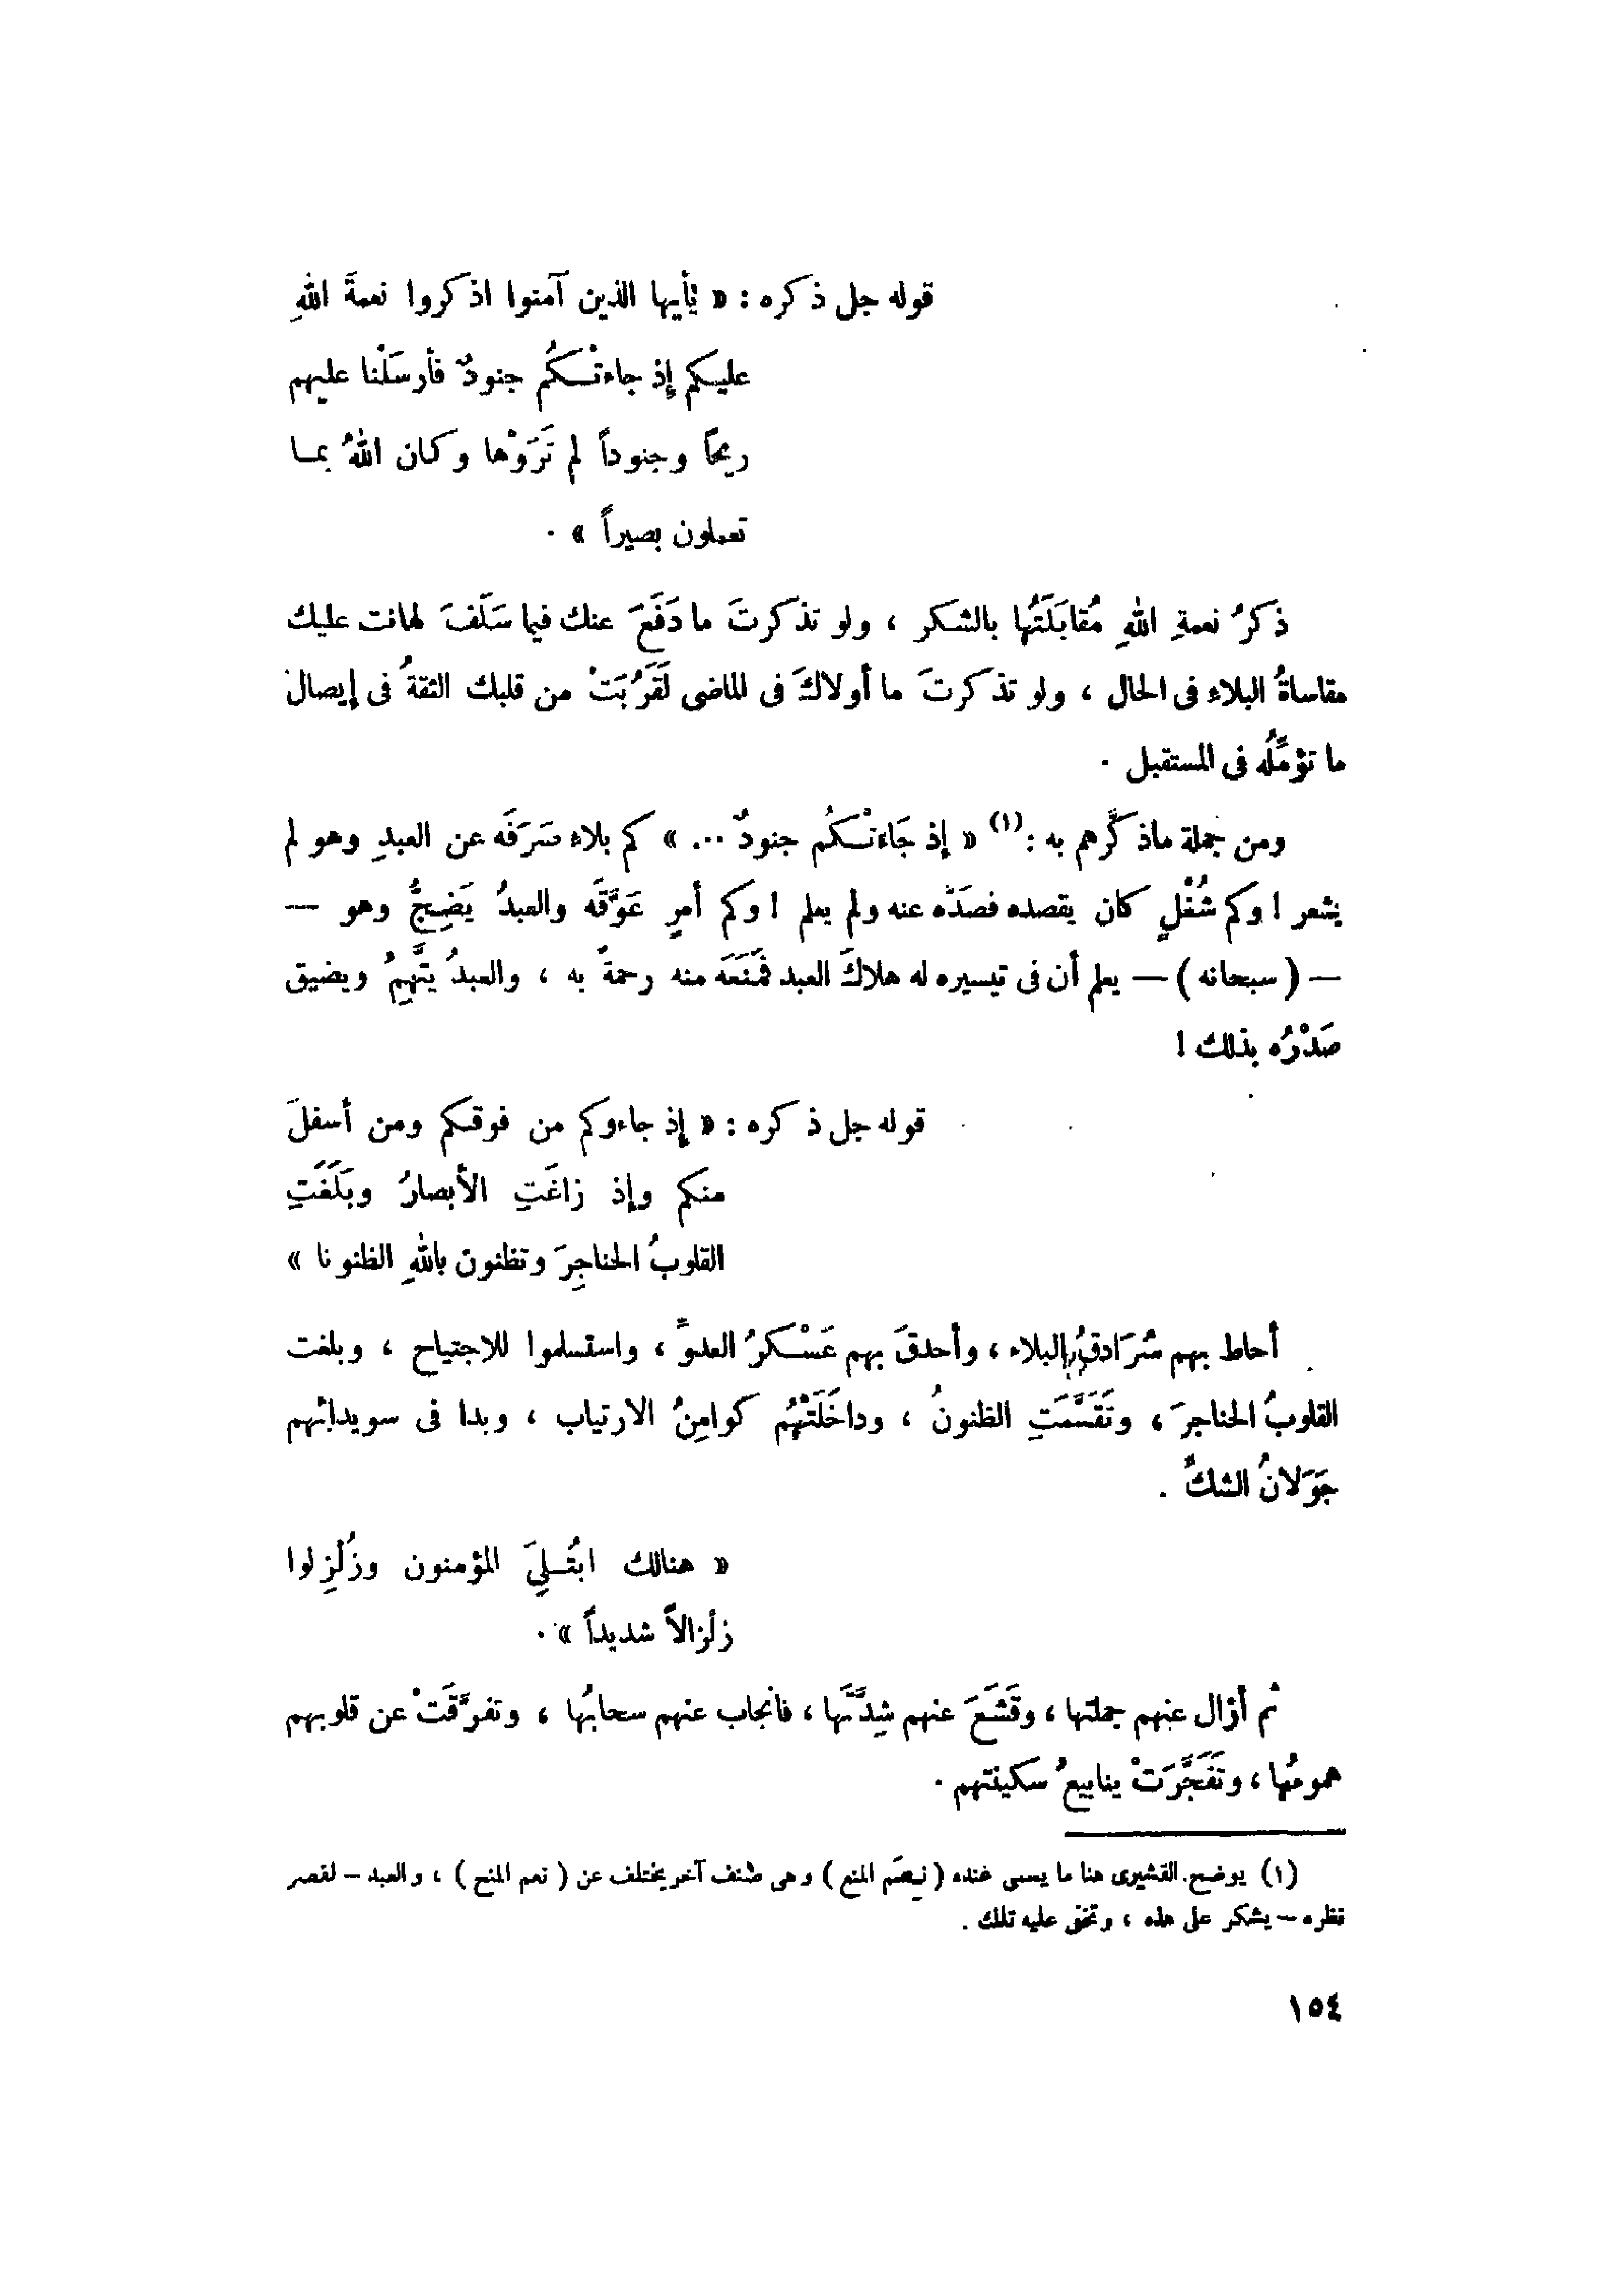 قوله جل ذكره : « يٰأيها الذين آمنوا اذكروا نعمةَ اللهِ
عليكم إذ جاءتْكُم جنودٌ فأرسَلْنا عليهم
ريحًا وجنوداً لم تَرَوْها وكان اللهُ بما
تعملون بصيراً » .
ذكرُ نعمةِ اللهِ مُقابَلَتُها بالشكر ، ولو تذكرتَ ما دَفَعَ عنك فيما سَلَفَ لهانت عليك
مقاساةُ البلاء فى الحال ، ولو تذكرتَ ما أولاكَ فى الماضى لَقَرُبَتْ من قلبك الثقةُ فى إيصال
ما تؤمِّلُه فى المستقبل .
ومن جملة ماذكَّرهم به :(١) « إذ جَاءتْكُم جنودٌ ... » كم بلاء صَرَفَه عن العبدِ وهو لم
يشعر ! وكم شُغْلٍ كان يقصده فصَدَّه عنه ولم يعلم ! وكم أمرٍ عَوَّقَه والعبدُ يَضِجُّ وهو —
— ( سبحانه ) — يعلم أن فى تيسيره له هلاكَ العبد فَمَنَعَه منه رحمةً به ، والعبدُ يتَّهِمُ ويضيق
صَدْرُه بذلك !
قوله جل ذكره : « إذ جاءوكم من فوقكم ومن أسفلَ
منكم وإذ زاغَتِ الأبصارُ وبَلَغَتِ
القلوبُ الحناجِرَ وتظنون باللهِ الظنونا »
أحاط بهم سُرَادقُ البلاء ، وأحدقَ بهم عَسْكرُ العدوِّ ، واستسلموا للاجتياح ، وبلغت
القلوبُ الحناجرَ ، وتَقَسَّمَتِ الظنونُ ، وداخَلَتْهُم كوامِنُ الارتياب ، وبدا فى سويدائهم
جَوَلانُ الشكِّ .
« هنالك ابتُلِىَ المؤمنون وزُلْزِلوا
زلْزالاً شديداً » .
ثم أزال عنهم جملتها ، وقَشَعَ عنهم شِدَّتَها ، فانجاب عنهم سحابُها ، وتفرَّقَتْ عن قلوبهم
همومُها ، وتَفَجَّرَتْ ينابيعُ سكينتهم .
(١) يوضح القشيرى هنا ما يسمى عنده ( نِعَم المنع ) وهى صنف آخر يختلف عن ( نعم المنح ) ، والعبد – لقصر
نظره – يشكر على هذه ، وتخفى عليه تلك .
١٥٤